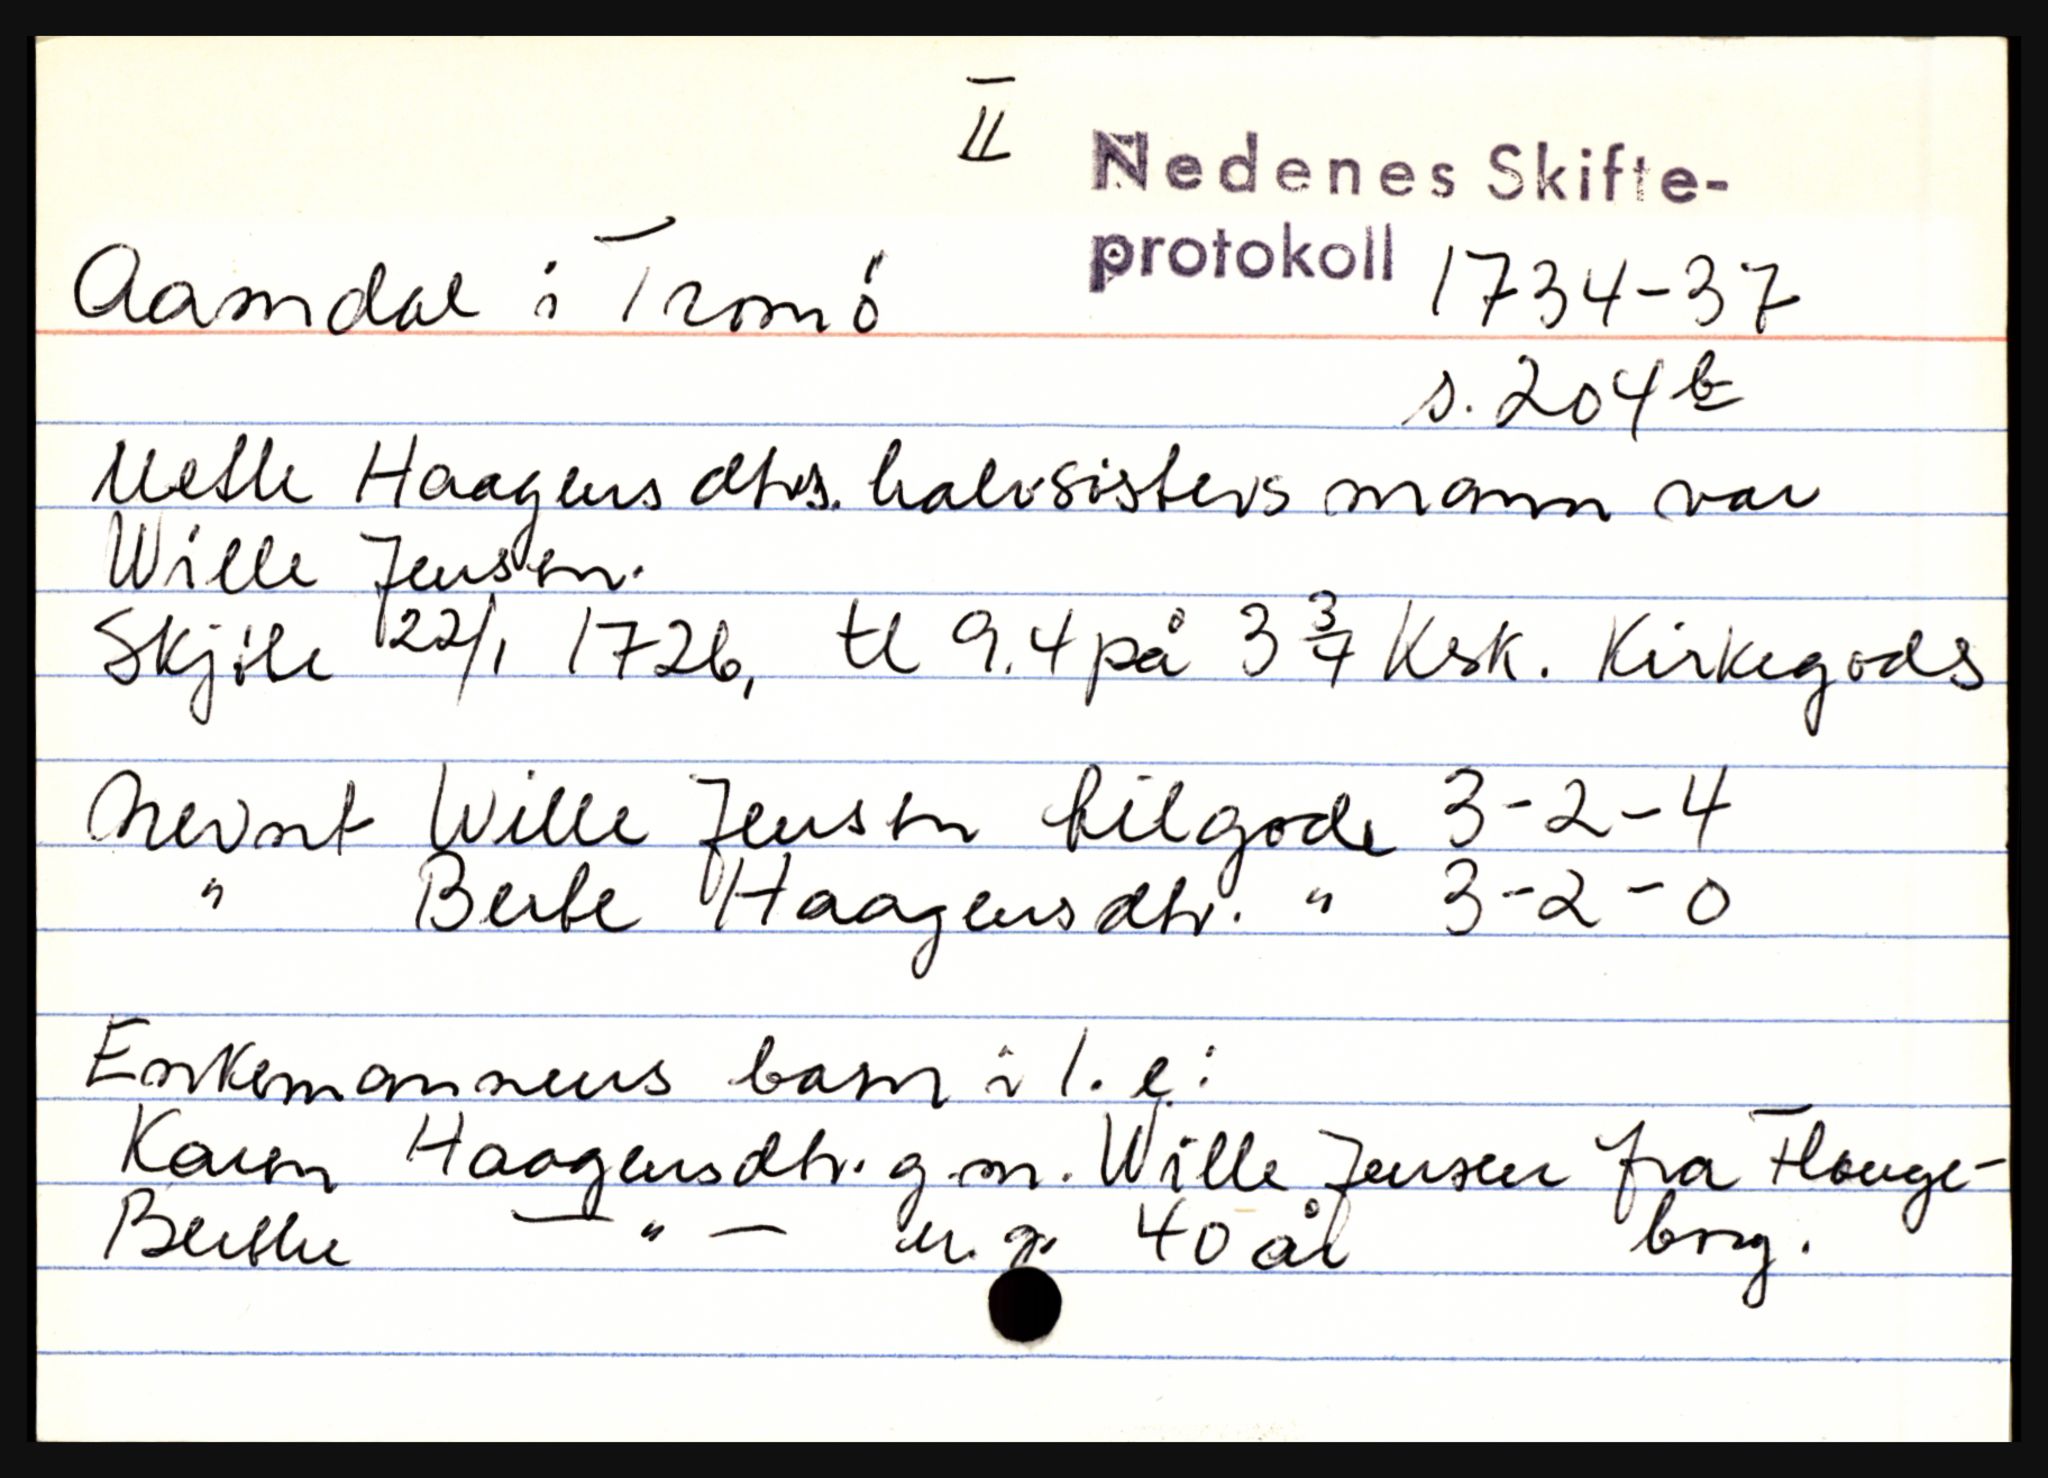 II
Nedenes Skifte-
protokoll 1734-37
Aamdal i Tromö
s. 204 b
Mette Haagensdtrs. halvsisters mann var
Wille Jensen.
Skjöte 22/1 1726, tl 9.4 på 3 3/4 Ksk. Kirkegods
Nevnt Wille Jensen tilgode 3-2-4
" Berte Haagensdtr. " 3-2-0
Enkemannens barn i 1. e:
Karen Haagensdtr. g.m. Wille Jensen fra Flange-
Berthe — " — u.g. 40 år borg.